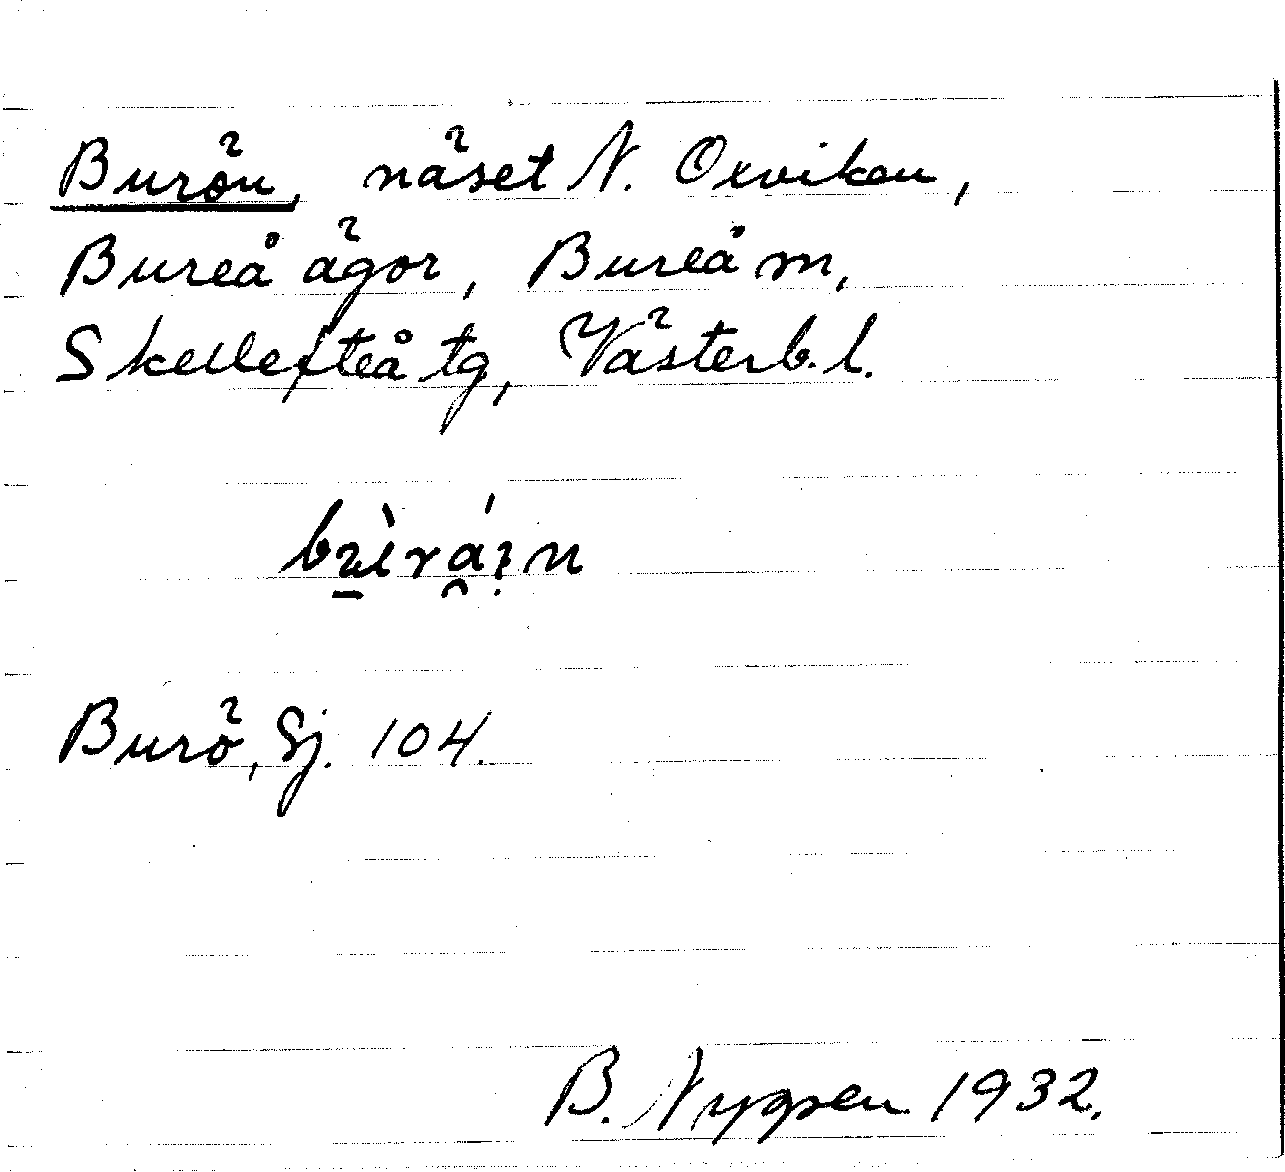 Burön, näset N. Orviken,
Bureå ägor, Bureå m,
Skellefteå tg, Västerb. l.
Burö, Sj. 104.
B. Nygren 1932.